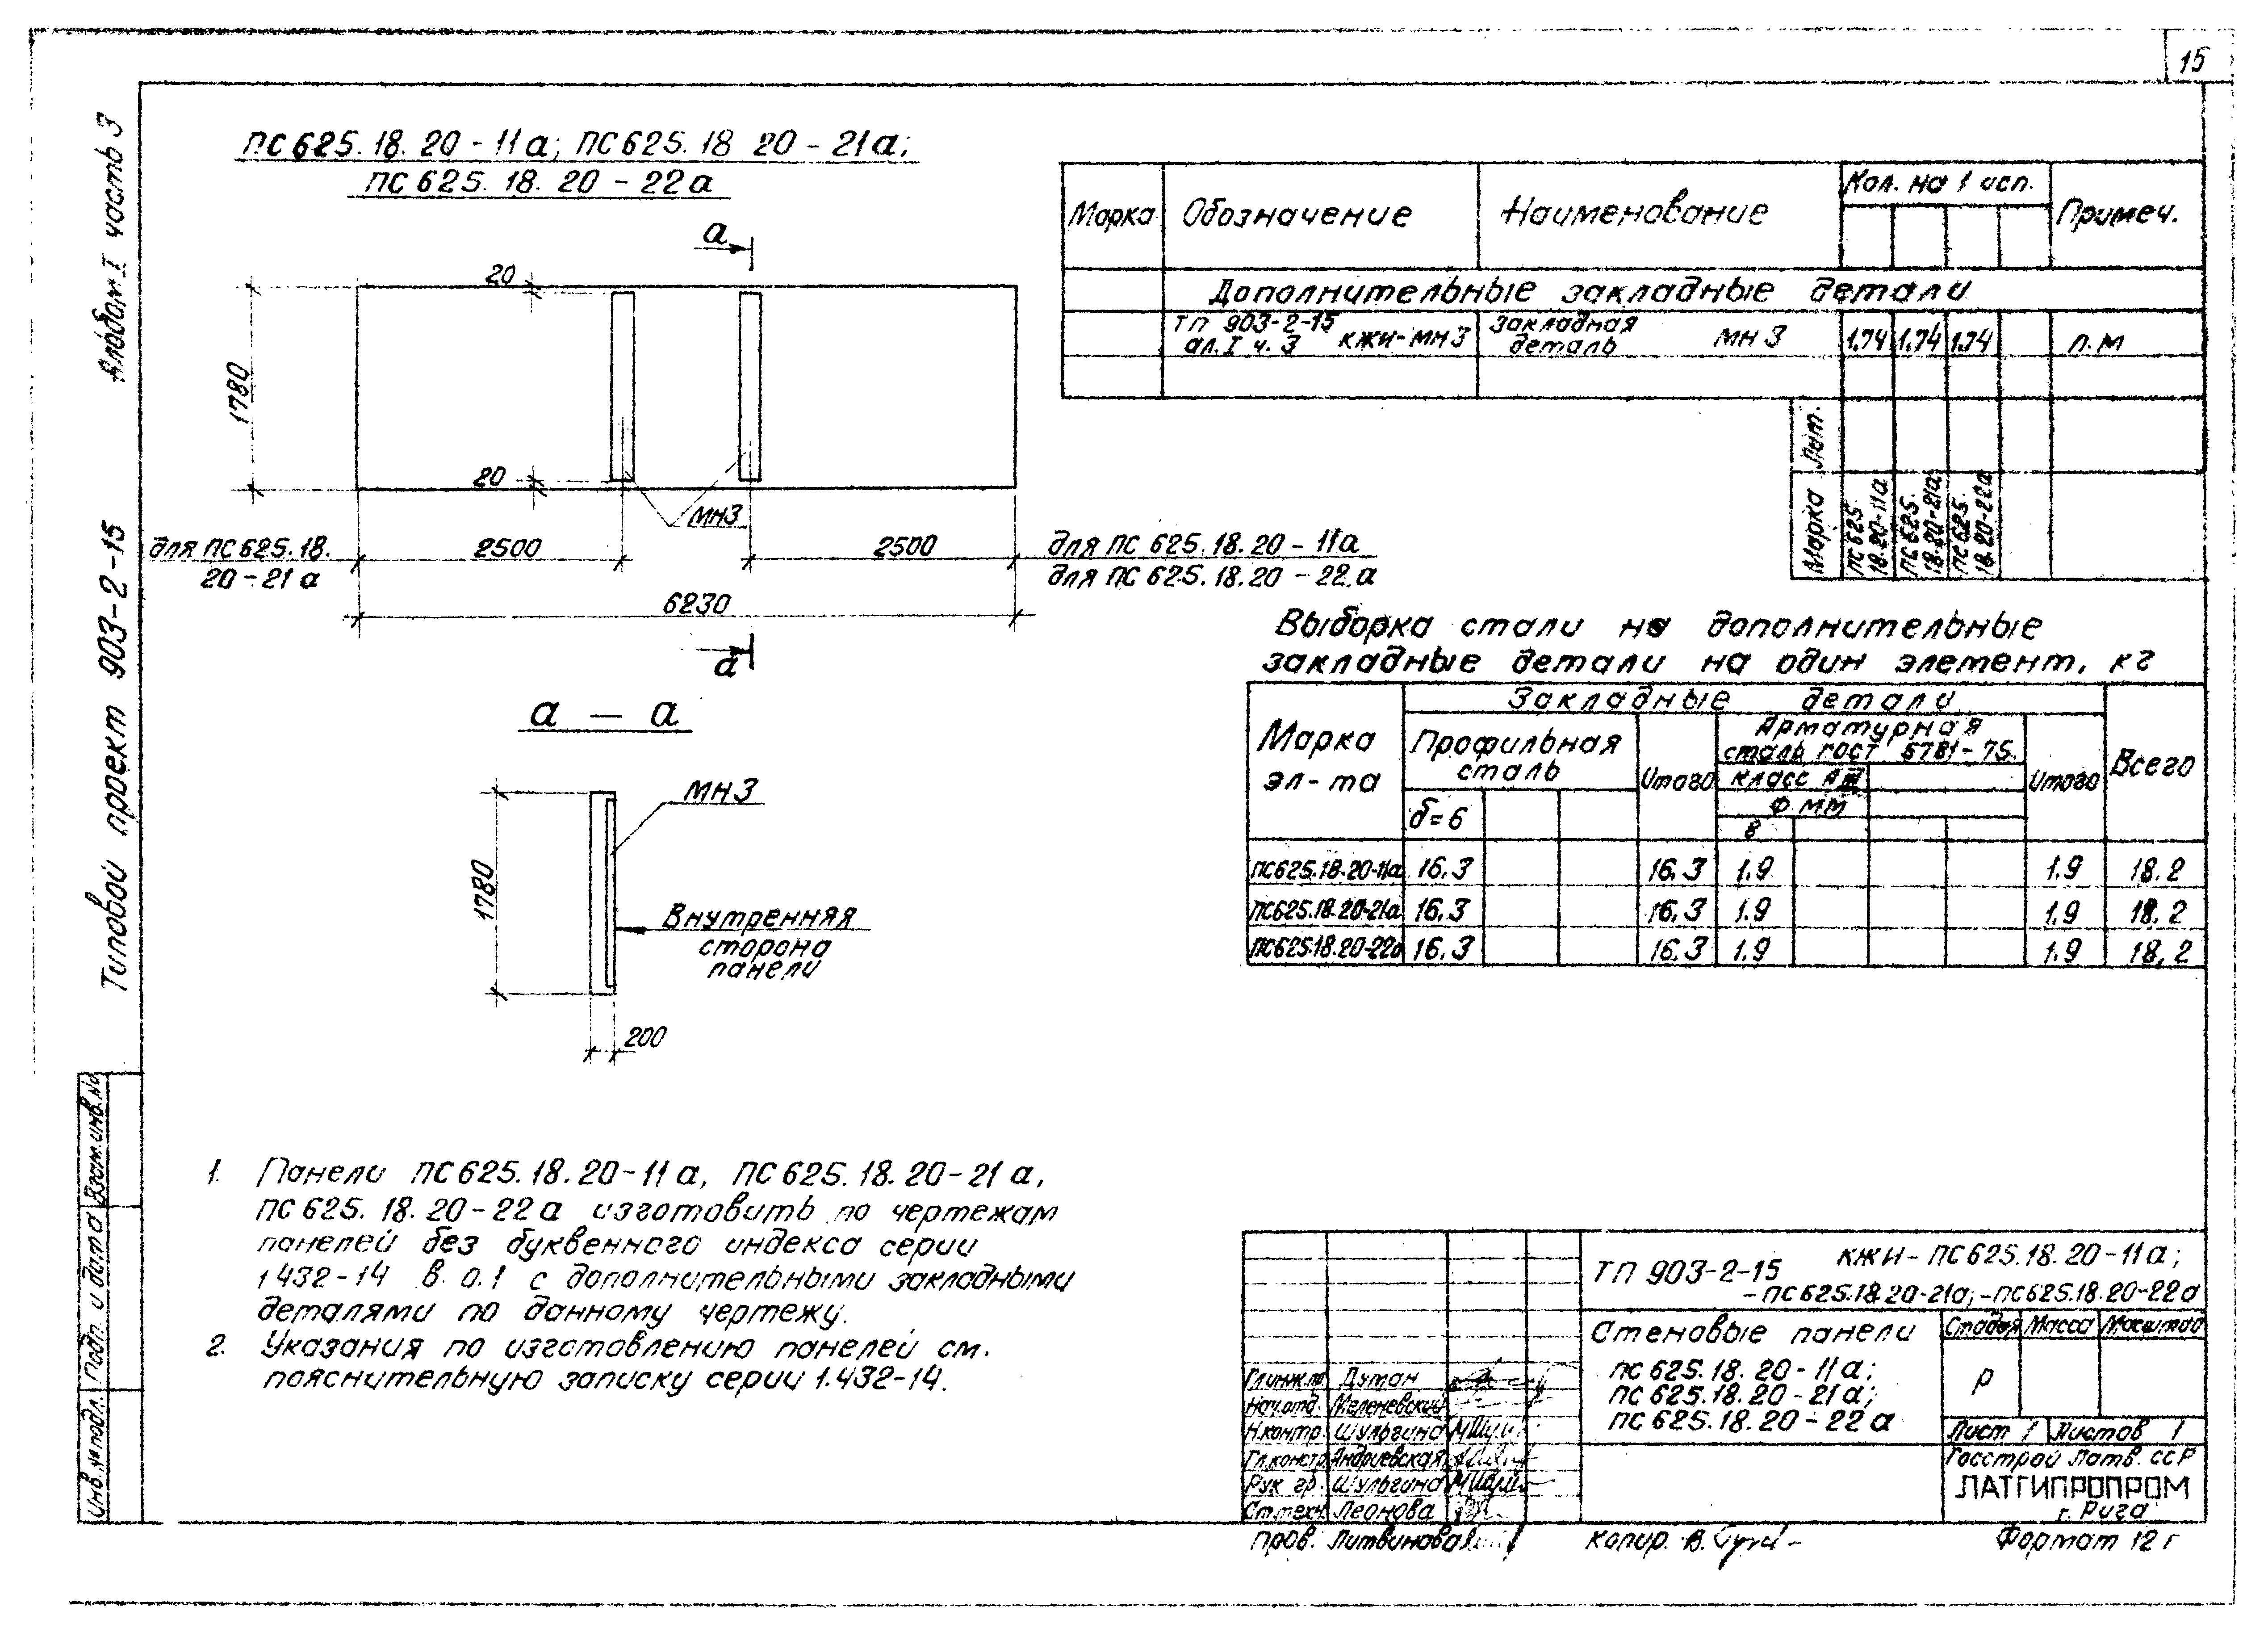 15
Альбом I часть 3
Типовой проект 903-2-15
ПС 625.18.20-11а; ПС 625.18 20-21а;
ПС 625.18.20-22а
а
20
1780
20
МН3
для ПС 625.18.
20-21а
2500
2500
для ПС 625.18.20-11а
для ПС 625.18.20-22а
6230
а
а – а
МН3
1780
Внутренняя
сторона
панели
200
Марка Обозначение Наименование Кол. на 1 исп. Примеч.
Дополнительные закладные детали
ТП 903-2-15 ал. I ч. 3 КЖИ-МН3 Закладная деталь МН 3 1.74 1.74 1.74 п.м
Лит.
Марка ПС 625. 18.20-11а ПС 625. 18.20-21а ПС 625. 18.20-22а
Выборка стали на дополнительные
закладные детали на один элемент, кг
Марка эл-та
Закладные детали
Всего
Профильная сталь
Итого
Арматурная сталь ГОСТ 5781-75
Итого
класс А III
Ф мм
δ=6
8
ПС625.18.20-11а 16.3 16.3 1.9 1.9 18.2
ПС625.18.20-21а 16.3 16.3 1.9 1.9 18.2
ПС625.18.20-22а 16.3 16.3 1.9 1.9 18.2
1. Панели ПС 625.18.20-11а, ПС 625.18.20-21а,
ПС 625.18.20-22а изготовить по чертежам
панелей без буквенного индекса серии
1 432-14 в. 0.1 с дополнительными закладными
деталями по данному чертежу.
2. Указания по изготовлению панелей см.
пояснительную записку серии 1.432-14.
Взам. инв. №
Подп. и дата
Инв. № подл.
ТП 903-2-15 КЖИ-ПС 625.18.20-11а;
-ПС 625.18.20-21а; -ПС 625.18.20-22а
Стеновые панели
ПС 625.18.20-11а;
ПС 625.18.20-21а;
ПС 625.18.20-22а
Стадия Масса Масштаб
Р
Лист 1 Листов 1
Госстрой Латв. ССР
ЛАТГИПРОПРОМ
г. Рига
Гл.инж.пр Думан
Нач.отд. Меленевский
Н.контр. Шульгина
Гл.констр. Андриевская
Рук гр. Шульгина
Ст.техн. Леонова
Пров. Литвинова
Копир. В.
Формат 12 г